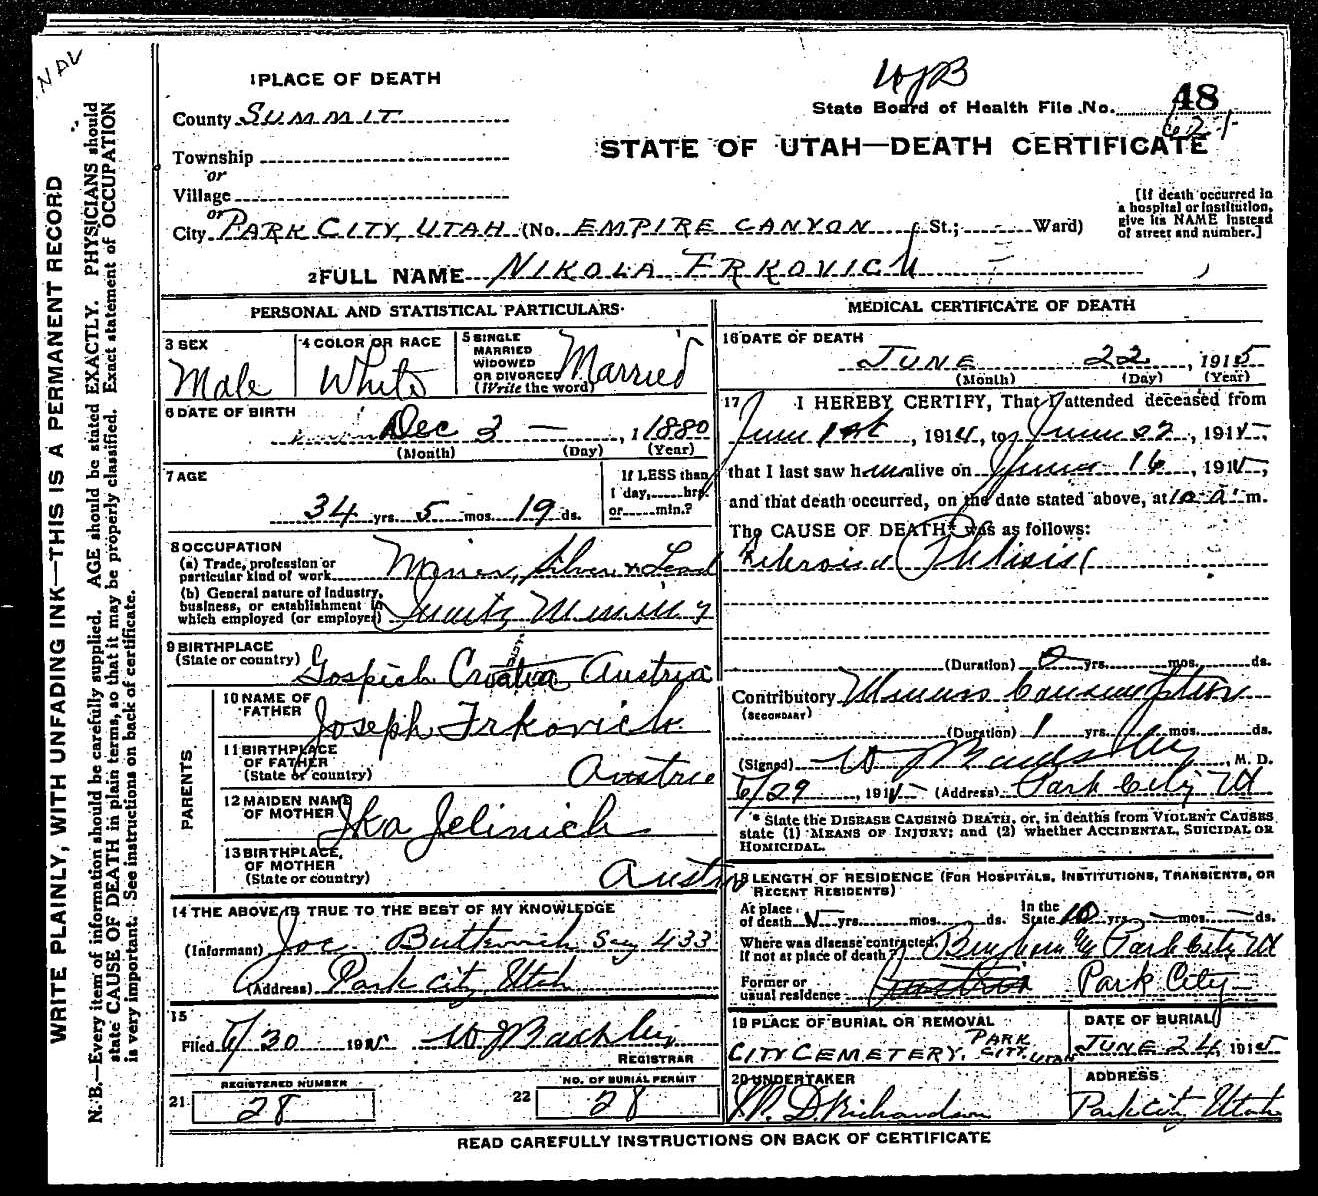 NAV
WRITE PLAINLY, WITH UNFADING INK—THIS IS A PERMANENT RECORD
N. B.—Every item of information should be carefully supplied. AGE should be stated EXACTLY. PHYSICIANS should
state CAUSE OF DEATH in plain terms, so that it may be properly classified. Exact statement of OCCUPATION
is very important. See instructions on back of certificate.
WJB
1 PLACE OF DEATH
County SUMMIT
State Board of Health File No. 48
621
Township
or
STATE OF UTAH—DEATH CERTIFICATE
Village
or
City PARK CITY, UTAH (No. EMPIRE CANYON St.; Ward)
[If death occurred in
a hospital or institution,
give its NAME instead
of street and number.]
2 FULL NAME NIKOLA FRKOVICH
PERSONAL AND STATISTICAL PARTICULARS
3 SEX
Male
4 COLOR OR RACE
White
5 SINGLE
MARRIED
WIDOWED
OR DIVORCED
(Write the word)
Married
6 DATE OF BIRTH
Dec 3 — , 1 1880
(Month) (Day) (Year)
7 AGE
34 yrs. 5 mos. 19 ds.
If LESS than
1 day, hrs.
or min.?
8 OCCUPATION
(a) Trade, profession or
particular kind of work Miner, Silver & Lead
(b) General nature of industry,
business, or establishment in
which employed (or employer) Quartz Mining
9 BIRTHPLACE
(State or country) Gospich Croatia Austria
PARENTS
10 NAME OF
FATHER Joseph Frkovich
11 BIRTHPLACE
OF FATHER
(State or country) Austria
12 MAIDEN NAME
OF MOTHER Ika Jelinich
13 BIRTHPLACE,
OF MOTHER
(State or country) Austria
14 THE ABOVE IS TRUE TO THE BEST OF MY KNOWLEDGE
(Informant) Joe 433
(Address) Park City, Utah
15
Filed 6/30 1915 REGISTRAR
REGISTERED NUMBER
21 28
NO. OF BURIAL PERMIT
22 28
MEDICAL CERTIFICATE OF DEATH
16 DATE OF DEATH
JUNE 22 , 1915
(Month) (Day) (Year)
17 I HEREBY CERTIFY, That I attended deceased from
June 1st , 1914, to June 22 , 1915,
that I last saw him alive on June 16 , 1915,
and that death occurred, on the date stated above, at 10 a. m.
The CAUSE OF DEATH* was as follows:
Fibroid Phthisis
(Duration) 2 yrs. mos. ds.
Contributory Miners Consumption
(SECONDARY)
(Duration) 1 yrs. mos. ds.
(Signed) W , M. D.
6/29 , 1915 (Address) Park City Ut
* State the DISEASE CAUSING DEATH, or, in deaths from VIOLENT CAUSES
state (1) MEANS OF INJURY; and (2) whether ACCIDENTAL, SUICIDAL OR
HOMICIDAL.
18 LENGTH OF RESIDENCE (FOR HOSPITALS, INSTITUTIONS, TRANSIENTS, OR
RECENT RESIDENTS)
At place
of death 5 yrs. mos. ds.
In the
State 10 yrs. — mos. — ds.
Where was disease contracted,
if not at place of death? Bingham Park City, Ut
Former or
usual residence Austria Park City
19 PLACE OF BURIAL OR REMOVAL
CITY CEMETERY. PARK CITY, UTAH
DATE OF BURIAL
JUNE 24, 1915
20 UNDERTAKER
Richardson
ADDRESS
Park City, Utah
READ CAREFULLY INSTRUCTIONS ON BACK OF CERTIFICATE